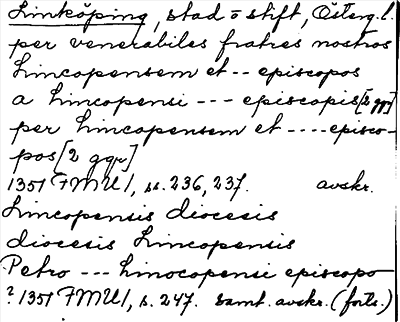 Linköping, stad o stift, Österg. l.
per venerabiles fratres nostros
Lincopensem et -- episcopos
a Lincopensi --- episcopis [2 ggr]
per Lincopensem et ---- episco-
pos [2 ggr]
1351 FMU 1, ss. 236, 237. avskr.
Lincopensis diocesis
diocesis Lincopensis
Petro --- Linocopensi episcopo
? 1351 FMU 1, s. 247. samt. avskr. (forts.)